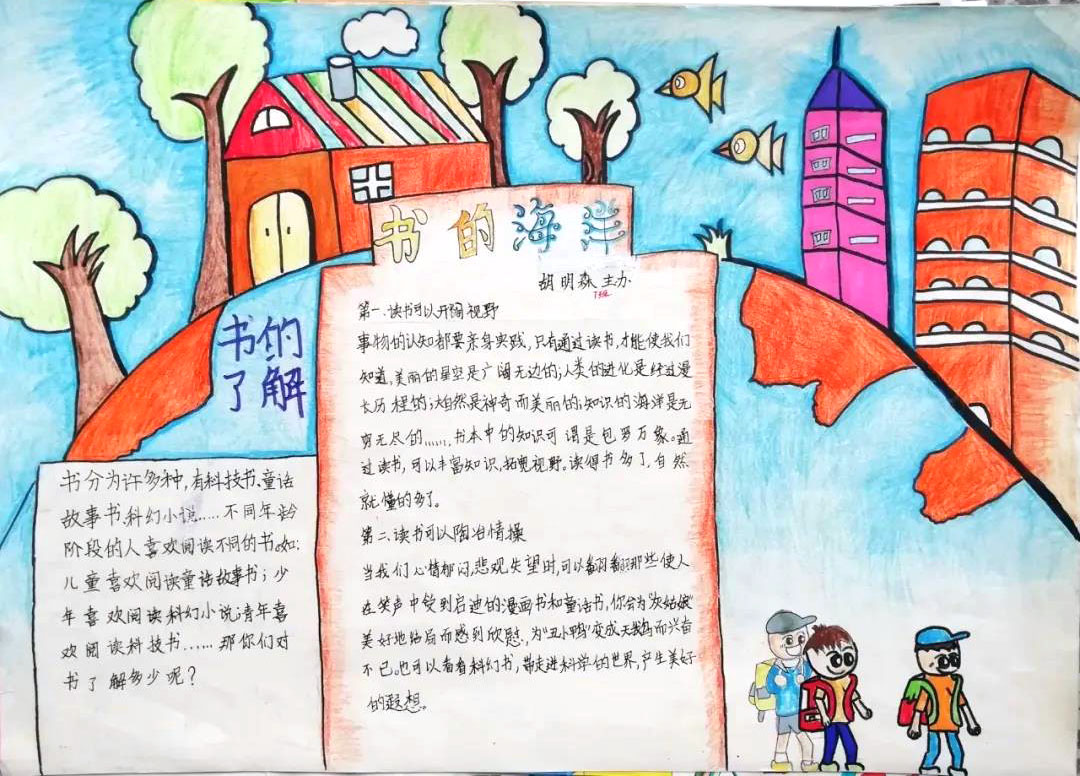 书的海洋
胡明森 主办
第一.读书可以开阔视野
事物的认知都要亲身实践,只有通过读书,才能使我们
知道,美丽的星空是广阔无边的;人类的进化是经过漫
长历程的;大自然是神奇而美丽的;知识的海洋是无
穷无尽的……,书本中的知识可谓是包罗万象。通
过读书,可以丰富知识,拓宽视野。读得书多了,自然
就懂的多了。
第二.读书可以陶冶情操
当我们心情郁闷,悲观失望时,可以翻翻那些使人
在笑声中受到启迪的漫画书和童话书,你会为"灰姑娘"
美好地结局而感到欣慰,为"丑小鸭"变成天鹅而兴奋
不已。也可以看看科幻书,带走进科学的世界,产生美好
的遐想。
书的
了解
书分为许多种,有科技书、童话
故事书、科幻小说……不同年龄
阶段的人喜欢阅读不同的书。如:
儿童喜欢阅读童话故事书;少
年喜欢阅读科幻小说;青年喜
欢阅读科技书……那你们对
书了解多少呢?